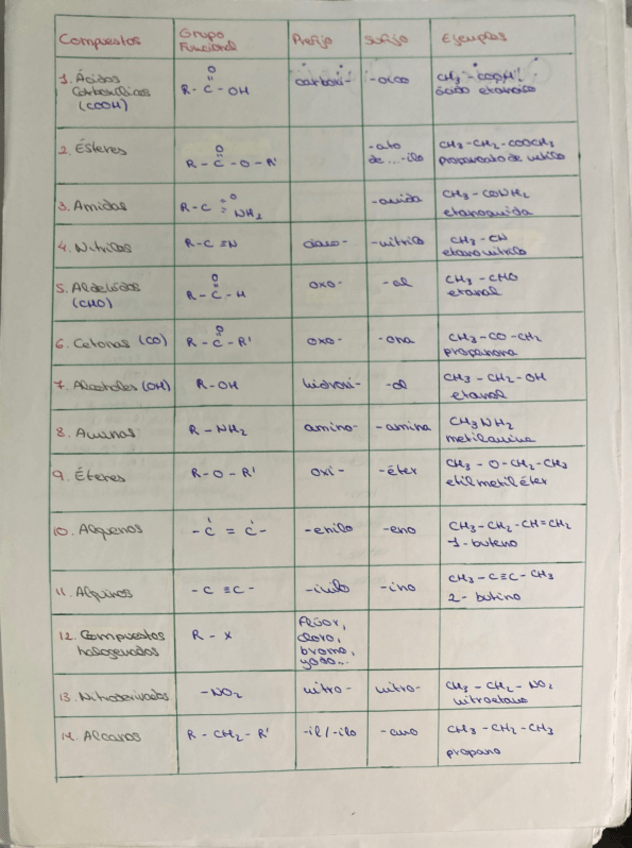 Compuestos Grupo Funcional Prefijo Sufijo Ejemplos
1. Ácidos Carboxílicos (COOH) R - C - OH O carboxi- -oico CH3 - COOH ácido etanoico
2. Ésteres R - C - O - R' O -ato de ... -ilo CH3 - CH2 - COOCH3 propanoato de metilo
3. Amidas R - C = O NH2 -amida CH3 - CONH2 etanoamida
4. Nitrilos R - C ≡ N ciano- -nitrilo CH3 - CN etanonitrilo
5. Aldehídos (CHO) R - C - H O oxo- -al CH3 - CHO etanal
6. Cetonas (CO) R - C - R' O oxo- -ona CH3 - CO - CH2 propanona
7. Alcoholes (OH) R - OH hidroxi- -ol CH3 - CH2 - OH etanol
8. Aminas R - NH2 amino- -amina CH3NH2 metilamina
9. Éteres R - O - R' oxi- -éter CH3 - O - CH2 - CH3 etilmetiléter
10. Alquenos - C = C - -enilo -eno CH3 - CH2 - CH = CH2 1-buteno
11. Alquinos - C ≡ C - -inilo -ino CH3 - C ≡ C - CH3 2-butino
12. Compuestos halogenados R - X flúor, cloro, bromo, yodo...
13. Nitroderivados - NO2 nitro- nitro- CH3 - CH2 - NO2 nitroetano
14. Alcanos R - CH2 - R' -il/-ilo -ano CH3 - CH2 - CH3 propano